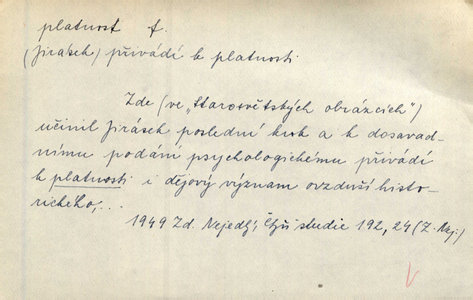 platnost f.
(Jirásek) přivádí k platnosti
Zde (ve „Starosvětských obrázcích")
učinil Jirásek poslední krok a k dosavad-
nímu podání psychologickému přivádí
k platnosti i dějový význam ovzduší histo-
rického,...
1949 Zd. Nejedlý, Čtyři studie 192, 24 (Z. Nej.)